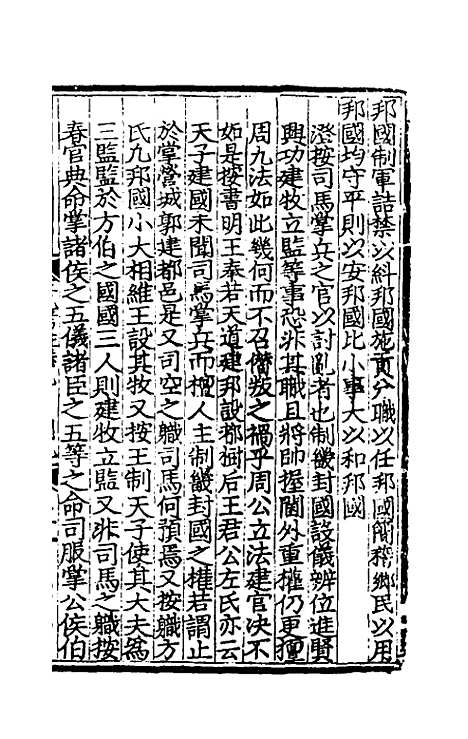 邦國制軍詰禁以糾邦國施貢分職以任邦國簡稽鄉民以用
邦國均守平則以安邦國比小事大以和邦國
澄按司馬掌兵之官以討亂者也制畿封國設儀辨位進賢
興功建牧立監等事恐非其職且將帥握閫外重權仍更擅
周九法如此幾何而不召僣叛之禍乎周公立法建官决不
如是按書明王奉若天道建邦設都樹后王君公左氏亦云
天子建國未聞司馬掌兵而擅人主制畿封國之權若謂止
於掌營城郭建都邑是又司空之職司馬何預焉又按職方
氏九邦國小大相維王設其牧又按王制天子使其大夫為
三監監於方伯之國國三人則建牧立監又非司馬之職按
春官典命掌諸侯之五儀諸臣之五等之命司服掌公侯伯